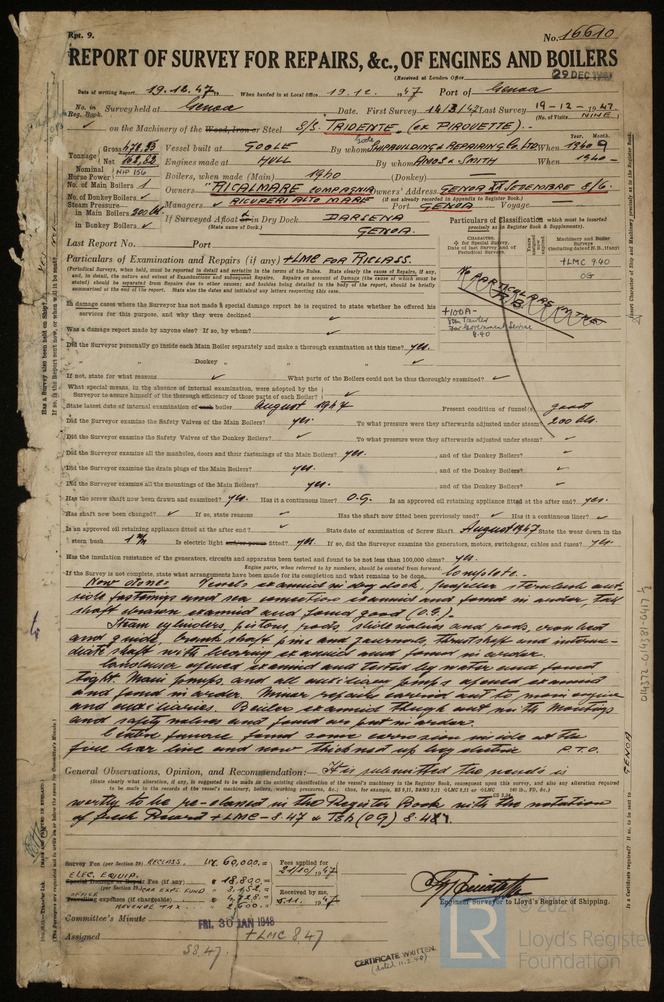 Rpt. 9.
No. 16610
REPORT OF SURVEY FOR REPAIRS, &c., OF ENGINES AND BOILERS
(Received at London Office
29 DEC 1947
Date of writing Report 19.12.47. When handed in at Local Office 19.12. 1947 Port of Genoa
No. in Reg. Book. Survey held at Genoa Date. First Survey 14/8/47 Last Survey 19-12-1947.
(No. of Visits NINE)
on the Machinery of the Wood, Iron or Steel S/S. TRIDENTE. (ex PIROUETTE).-
Tonnage Gross 478.93 Vessel built at GOOLE By whom Goole SHIPBUILDING & REPAIRING Co. LTD When 1940 9
Net 162.62 Engines made at HULL By whom AMOS & SMITH When 1940 -
Nominal Horse Power NHP 156 Boilers, when made (Main) 1940 (Donkey) —
No. of Main Boilers 1 Owners "RICALMARE COMPAGNIA Owners' Address GENOA XX SETEMBRE 8/6.
(if not already recorded in Appendix to Register Book.)
No. of Donkey Boilers Managers RICUPERI ALTO MARE" Port GENOA Voyage —
Steam Pressure in Main Boilers 200 lbs. If Surveyed Afloat or in Dry Dock DARSENA
(State name of Dock.) GENOA.
in Donkey Boilers
Particulars of Classification which must be inserted precisely as in Register Book & Supplements).
Last Report No. Port
+LMC 9.40
OG
Particulars of Examination and Repairs (if any) +LMC FOR RECLASS.
No PARTICULARS IN THE R.B.
+100A-
For Government Service
9.40
In damage cases where the Surveyor has not made a special damage report he is required to state whether he offered his
services for this purpose, and why they were declined
Was a damage report made by anyone else? If so, by whom?
Did the Surveyor personally go inside each Main Boiler separately and make a thorough examination at this time? yes.
" " " " Donkey " " " " "
If not, state for what reasons What parts of the Boilers could not be thus thoroughly examined?
What special means, in the absence of internal examination, were adopted by the
Surveyor to assure himself of the thorough efficiency of those parts of each Boiler?
State latest date of internal examination of each boiler August 1947 Present condition of funnel(s) good
Did the Surveyor examine the Safety Valves of the Main Boilers? yes. To what pressure were they afterwards adjusted under steam? 200 lbs.
Did the Surveyor examine the Safety Valves of the Donkey Boilers? To what pressure were they afterwards adjusted under steam?
Did the Surveyor examine all the manholes, doors and their fastenings of the Main Boilers? yes. , and of the Donkey Boilers?
Did the Surveyor examine the drain plugs of the Main Boilers? yes. , and of the Donkey Boilers?
Did the Surveyor examine all the mountings of the Main Boilers? yes. , and of the Donkey Boilers?
Has the screw shaft now been drawn and examined? yes. Has it a continuous liner? O.G. Is an approved oil retaining appliance fitted at the after end? yes.
Has shaft now been changed? If so, state reasons Has the shaft now fitted been previously used? Has it a continuous liner?
Is an approved oil retaining appliance fitted at the after end? State date of examination of Screw Shaft August 1947 State the wear down in the
stern bush Is electric light fitted? yes. If so, did the Surveyor examine the generators, motors, switchgear, cables and fuses? yes.
Has the insulation resistance of the generators, circuits and apparatus been tested and found to be not less than 100,000 ohms? yes.
Engine parts, when referred to by numbers, should be counted from forward.
If the Survey is not complete, state what arrangements have been made for its completion and what remains to be done. Complete.
Now done: Vessel examined in dry dock, propeller sternbush out-
side fastenings and sea connection examined and found in order, tail
shaft drawn examined and found good (O.G.).
Steam cylinders, pistons, rods, slide valves and rods, cross head
and guide, crank shaft pins and journals, thrust shaft and interme-
diate shaft with bearing examined and found in order.
Condenser opened examined and tested by water and found
tight. Main pumps and all auxiliary pumps opened examined
and found in order. Minor repairs carried out to main engine
and auxiliaries. Boiler examined through out with the mountings
and safety valves and found or put in order.
Centre furnace found some corrosion inside at the
fire bar line and now thickned up by electric P.T.O.
General Observations, Opinion, and Recommendation:— It is submitted the vessel is
worthy to be re-classed in the Register Book with the notation
of fresh Record +LMC - 8.47 & TSh (OG) 8.47.
Survey Fee (per Section 29) RECLASS. Lit. 60,000.=
ELEC. EQUIP.
Special Fee (if any) 18,800.=
(per Section 29) CAR EXPS. FUND 3.152.=
OFFICE expenses (if chargeable)
REVENUE TAX
Fees applied for
21/10/1947
Received by me,
5.11. 1947
Engineer Surveyor to Lloyd's Register of Shipping.
Committee's Minute FRI. 30 JAN 1948
Assigned +LMC 8.47
SS.47.
CERTIFICATE WRITTEN.
GENOA
014372-014381-0417 ½
LR
© 2021
Lloyd's Register
Foundation